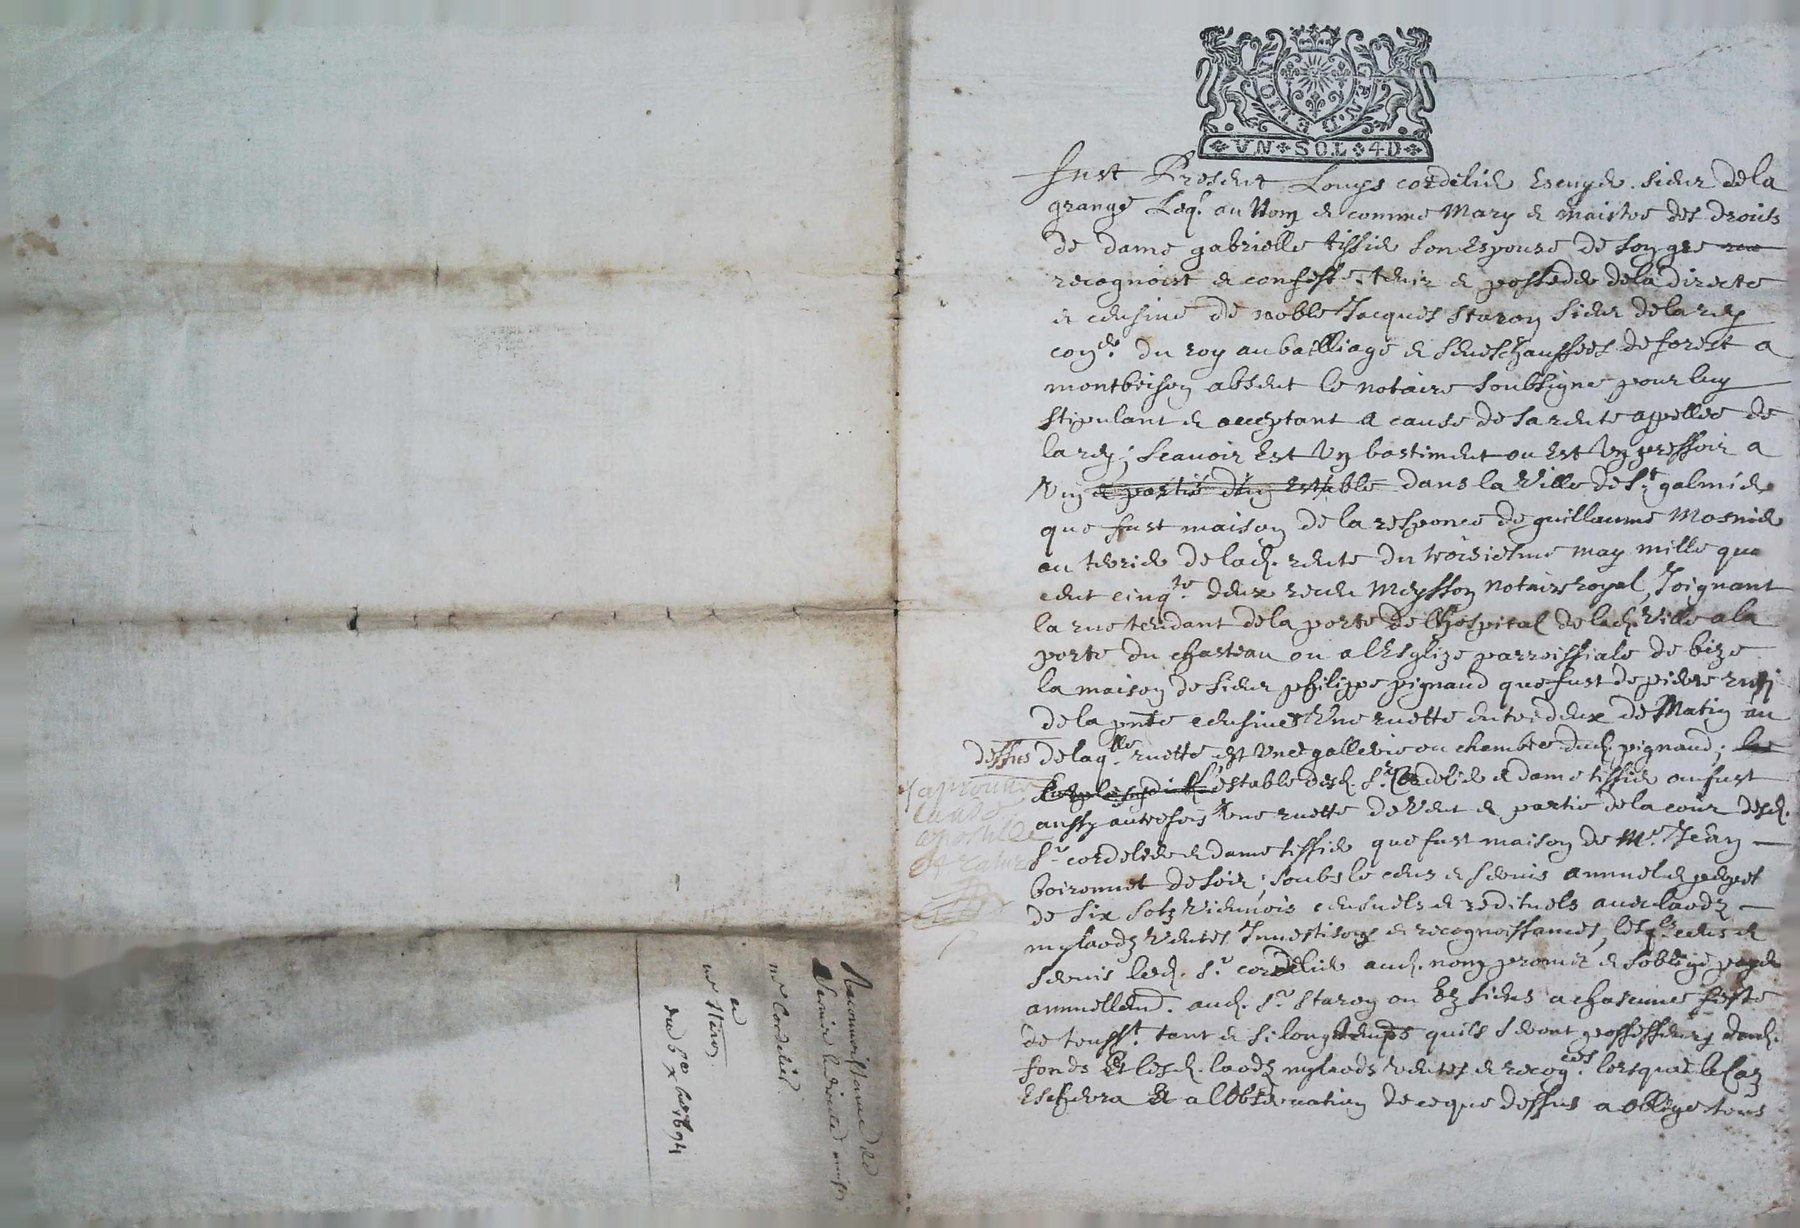 GEN. D E LION
VN SOL 4D
Fust Present Louys cordelier Escuyer sieur de la
grange Leq.l au Nom et comme Mary et maistre des droits
de dame gabrielle tissier son Espouse de son gre
recognoist et confesse tenir et posseder de la directe
et censive de noble Jacques Staron sieur de la rey
con.er du roy au bailliage et seneschaussees de forest a
montbrison absent le notaire soubsigne pour luy
stipulant et acceptant a cause de sa rente appellee de
la rey; scavoir Est Un bastiment ou Est Un pressoir a
Vin et partie d'un Estable dans la Ville de S.t galmier
que fust maison de la responce de guillaume Mosnier
au terrier de lad. rente du troisiesme may mille qua
cent cinq.te deux receu Meysson Notaire royal, Joignant
la rue tendant de la porte de l'hospital de lad. Ville a la
porte du chasteau ou a l'Esglize parroissiale de bize
la maison de sieur philippe pignaud que fust de pierre
de la p.nte censive Une ruette entre deux de Matin au
dessus de laq.lle ruette est Une gallerie ou chambre dud. pignaud;
l'estable desd. S.r Cordelier et dame tissier ou fust
aussy autrefois Une ruette de Vent et partie de la cour desd.
S.r cordelier et dame tissier que fust maison de M.e Jean
boironnet de soir; soubs le cens et servis annuel et perpet
de six solz Viennois censuels et reddituels avec laodz
mylaodz Ventes Investisons et recognoissances, lesq.ls cens et
servis led. S.r cordelier aud. nom promet et s'oblige payer
annuellem.t aud. S.r Staron ou Ez siens a chascune feste
de touss.t tant et si longtemps quils seront possesseurs dud.
fonds Et lesd. laodz mylaods Ventes et recog.ces lorsque le Cas
Escherra Et a l'Observation de ce que dessus a oblige tous
J'aprouve
laude
apostille
et rature
Reconnoissance de
Mr Cordelier
a
Mr Staron
du 6e xbre 1694